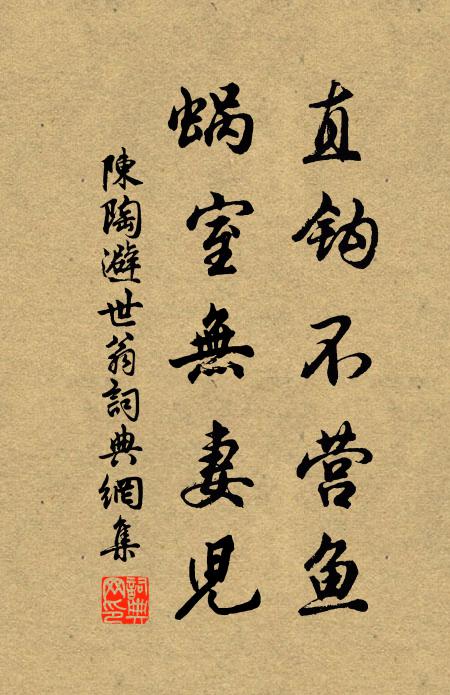 直钩不营鱼
蜗室無妻児
陳陶避世翁詞典網集
詞典网印